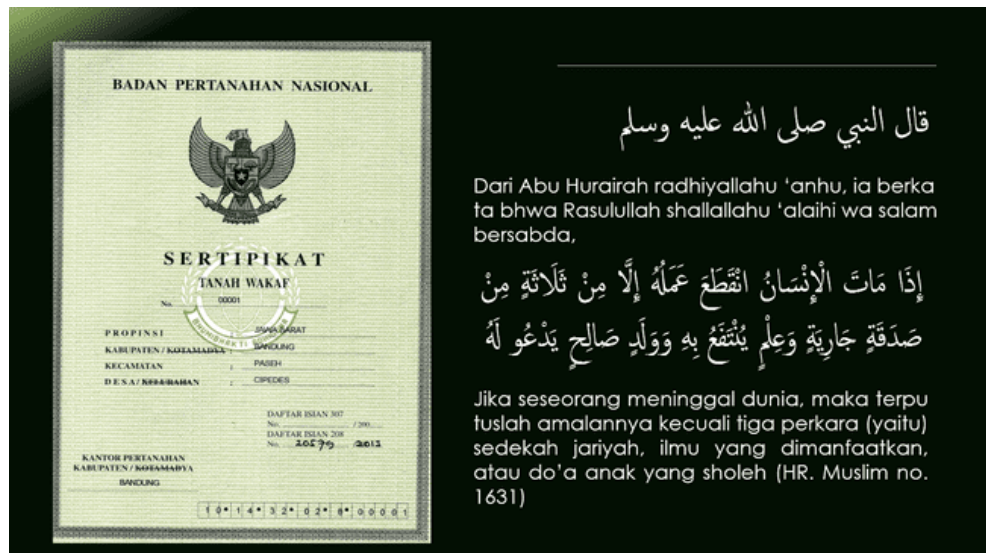 BADAN PERTANAHAN NASIONAL
SERTIPIKAT
TANAH WAKAF
No. 00001
BHUMIBHAKTI
PROPINSI : JAWA BARAT
KABUPATEN / KOTAMADYA : BANDUNG
KECAMATAN : PASEH
DESA / KELURAHAN : CIPEDES
DAFTAR ISIAN 307
No. / 200
DAFTAR ISIAN 208
No. 20579 /2013
KANTOR PERTANAHAN
KABUPATEN / KOTAMADYA
BANDUNG
10•14•32•02•8•00001
قال النبي صلى الله عليه وسلم
Dari Abu Hurairah radhiyallahu ‘anhu, ia berka
ta bhwa Rasulullah shallallahu ‘alaihi wa salam
bersabda,
إِذَا مَاتَ الْإِنْسَانُ انْقَطَعَ عَمَلُهُ إِلَّا مِنْ ثَلَاثَةٍ مِنْ
صَدَقَةٍ جَارِيَةٍ وَعِلْمٍ يُنْتَفَعُ بِهِ وَوَلَدٍ صَالِحٍ يَدْعُو لَهُ
Jika seseorang meninggal dunia, maka terpu
tuslah amalannya kecuali tiga perkara (yaitu)
sedekah jariyah, ilmu yang dimanfaatkan,
atau do’a anak yang sholeh (HR. Muslim no.
1631)